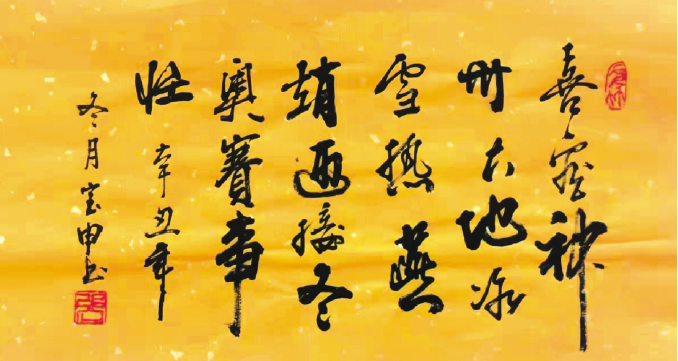 喜神
州大地冰
雪热燕
趙迎接冬
奥赛事
壮辛丑年
冬月宝申书